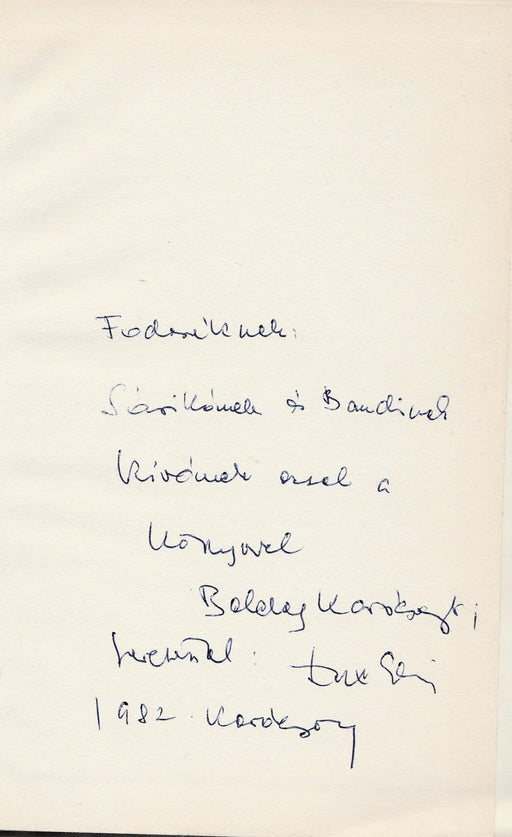 Fodoréknek:
Sárikának és Bandinak
Kívánok ezzel a
Könyvvel
Boldog Karácsonyt;
Szeretettel:
1982. Karácsony